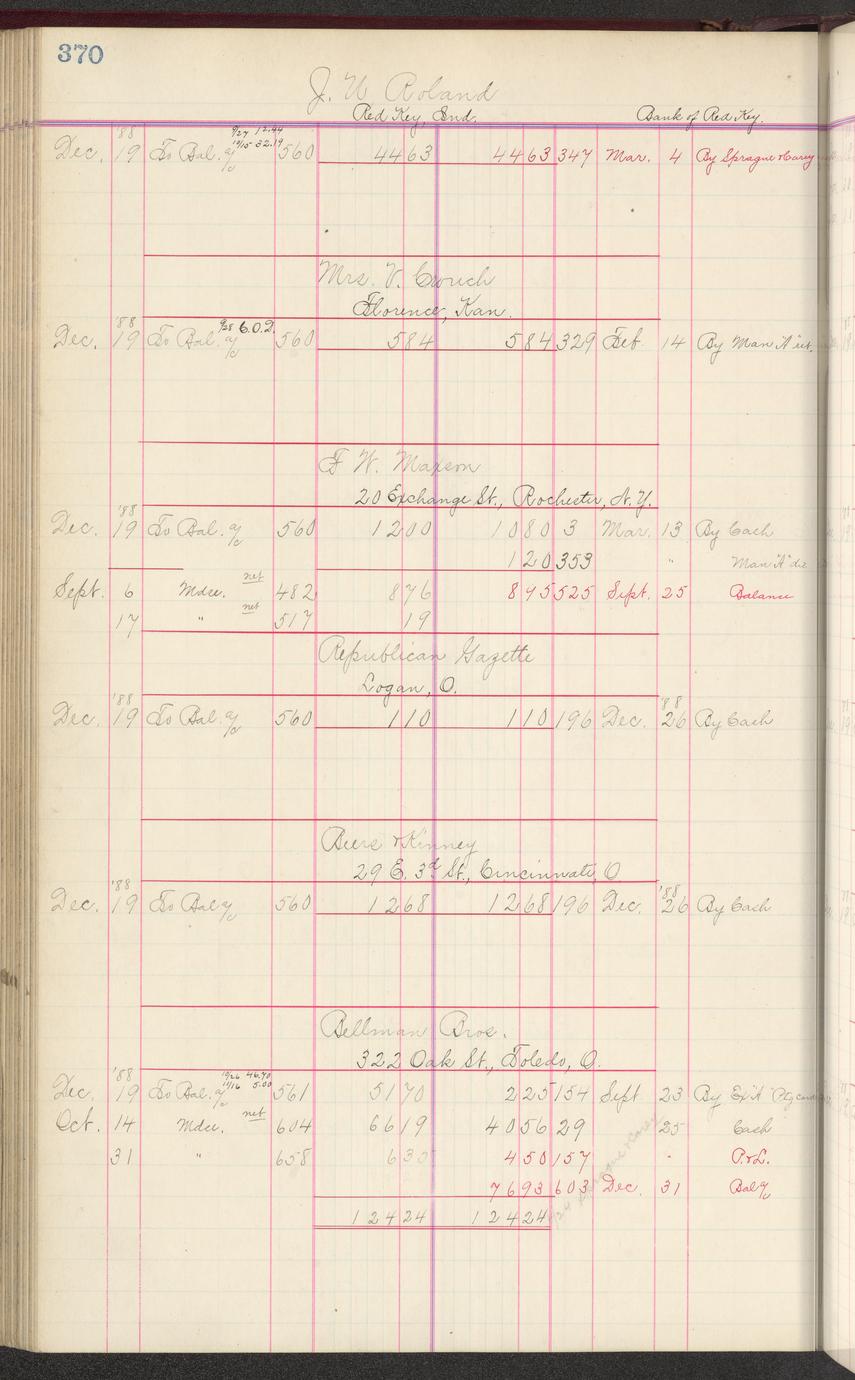 370
J. W. Roland
Red Key, Ind. Bank of Red Key.
'88 9/27 12.44
10/15 32.19
Dec. 19 To Bal. a/c 560 4463 4463 347 Mar. 4 By Sprague & Carey
Mrs. V. Crouch
Florence, Kan.
'88 9/28 6.02
Dec. 19 To Bal. a/c 560 584 584 329 Feb. 14 By Man "A"
F W. Maxson
20 Exchange St., Rochester, N.Y.
'88
Dec. 19 To Bal. a/c 560 1200 1080 3 Mar. 13 By Cash
120 353 " Man "A"
Sept. 6 Mdse. net 482 876 895 525 Sept. 25 Balance
17 " net 517 19
Republican Gazette
Logan, O.
'88 '88
Dec. 19 To Bal. a/c 560 110 110 196 Dec. 26 By Cash
Beers & Kinney
29 E. 3d St., Cincinnati, O
'88 '88
Dec. 19 To Bal a/c 560 1268 1268 196 Dec. 26 By Cash
Bellman Bros.
322 Oak St., Toledo, O.
'88 10/26 46.70
11/16 5.00
Dec. 19 To Bal. a/c 561 5170 225 154 Sept 23 By Ex "A"
Oct. 14 Mdse. net 604 6619 4056 29 25 Cash
31 " 658 635 450 157 " P. & L.
7693 603 Dec. 31 Bal a/c
12424 12424